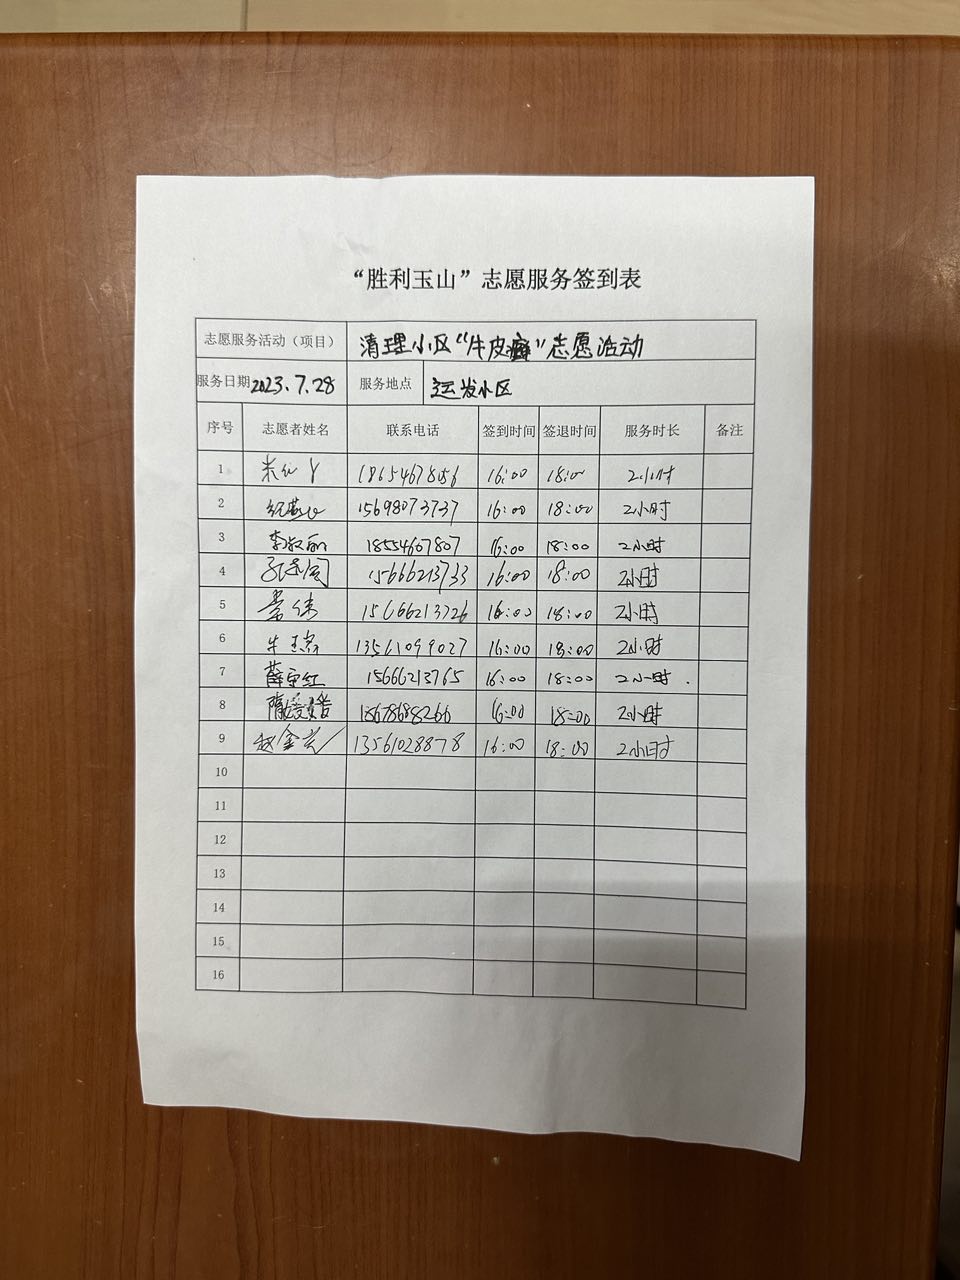 “胜利玉山”志愿服务签到表
志愿服务活动（项目） 清理小区“牛皮癣”志愿活动
服务日期 2023.7.28 服务地点 运发小区
序号 志愿者姓名 联系电话 签到时间 签退时间 服务时长 备注
1 18654678056 16:00 18:00 2小时
2 15698073737 16:00 18:00 2小时
3 李淑丽 18554607807 16:00 18:00 2小时
4 15666213733 16:00 18:00 2小时
5 15666213726 16:00 18:00 2小时
6 13561099027 16:00 18:00 2小时
7 薛守红 15666213765 16:00 18:00 2小时.
8 隋媛媛 18678688266 16:00 18:00 2小时
9 赵金芝 13561028878 16:00 18:00 2小时
10
11
12
13
14
15
16